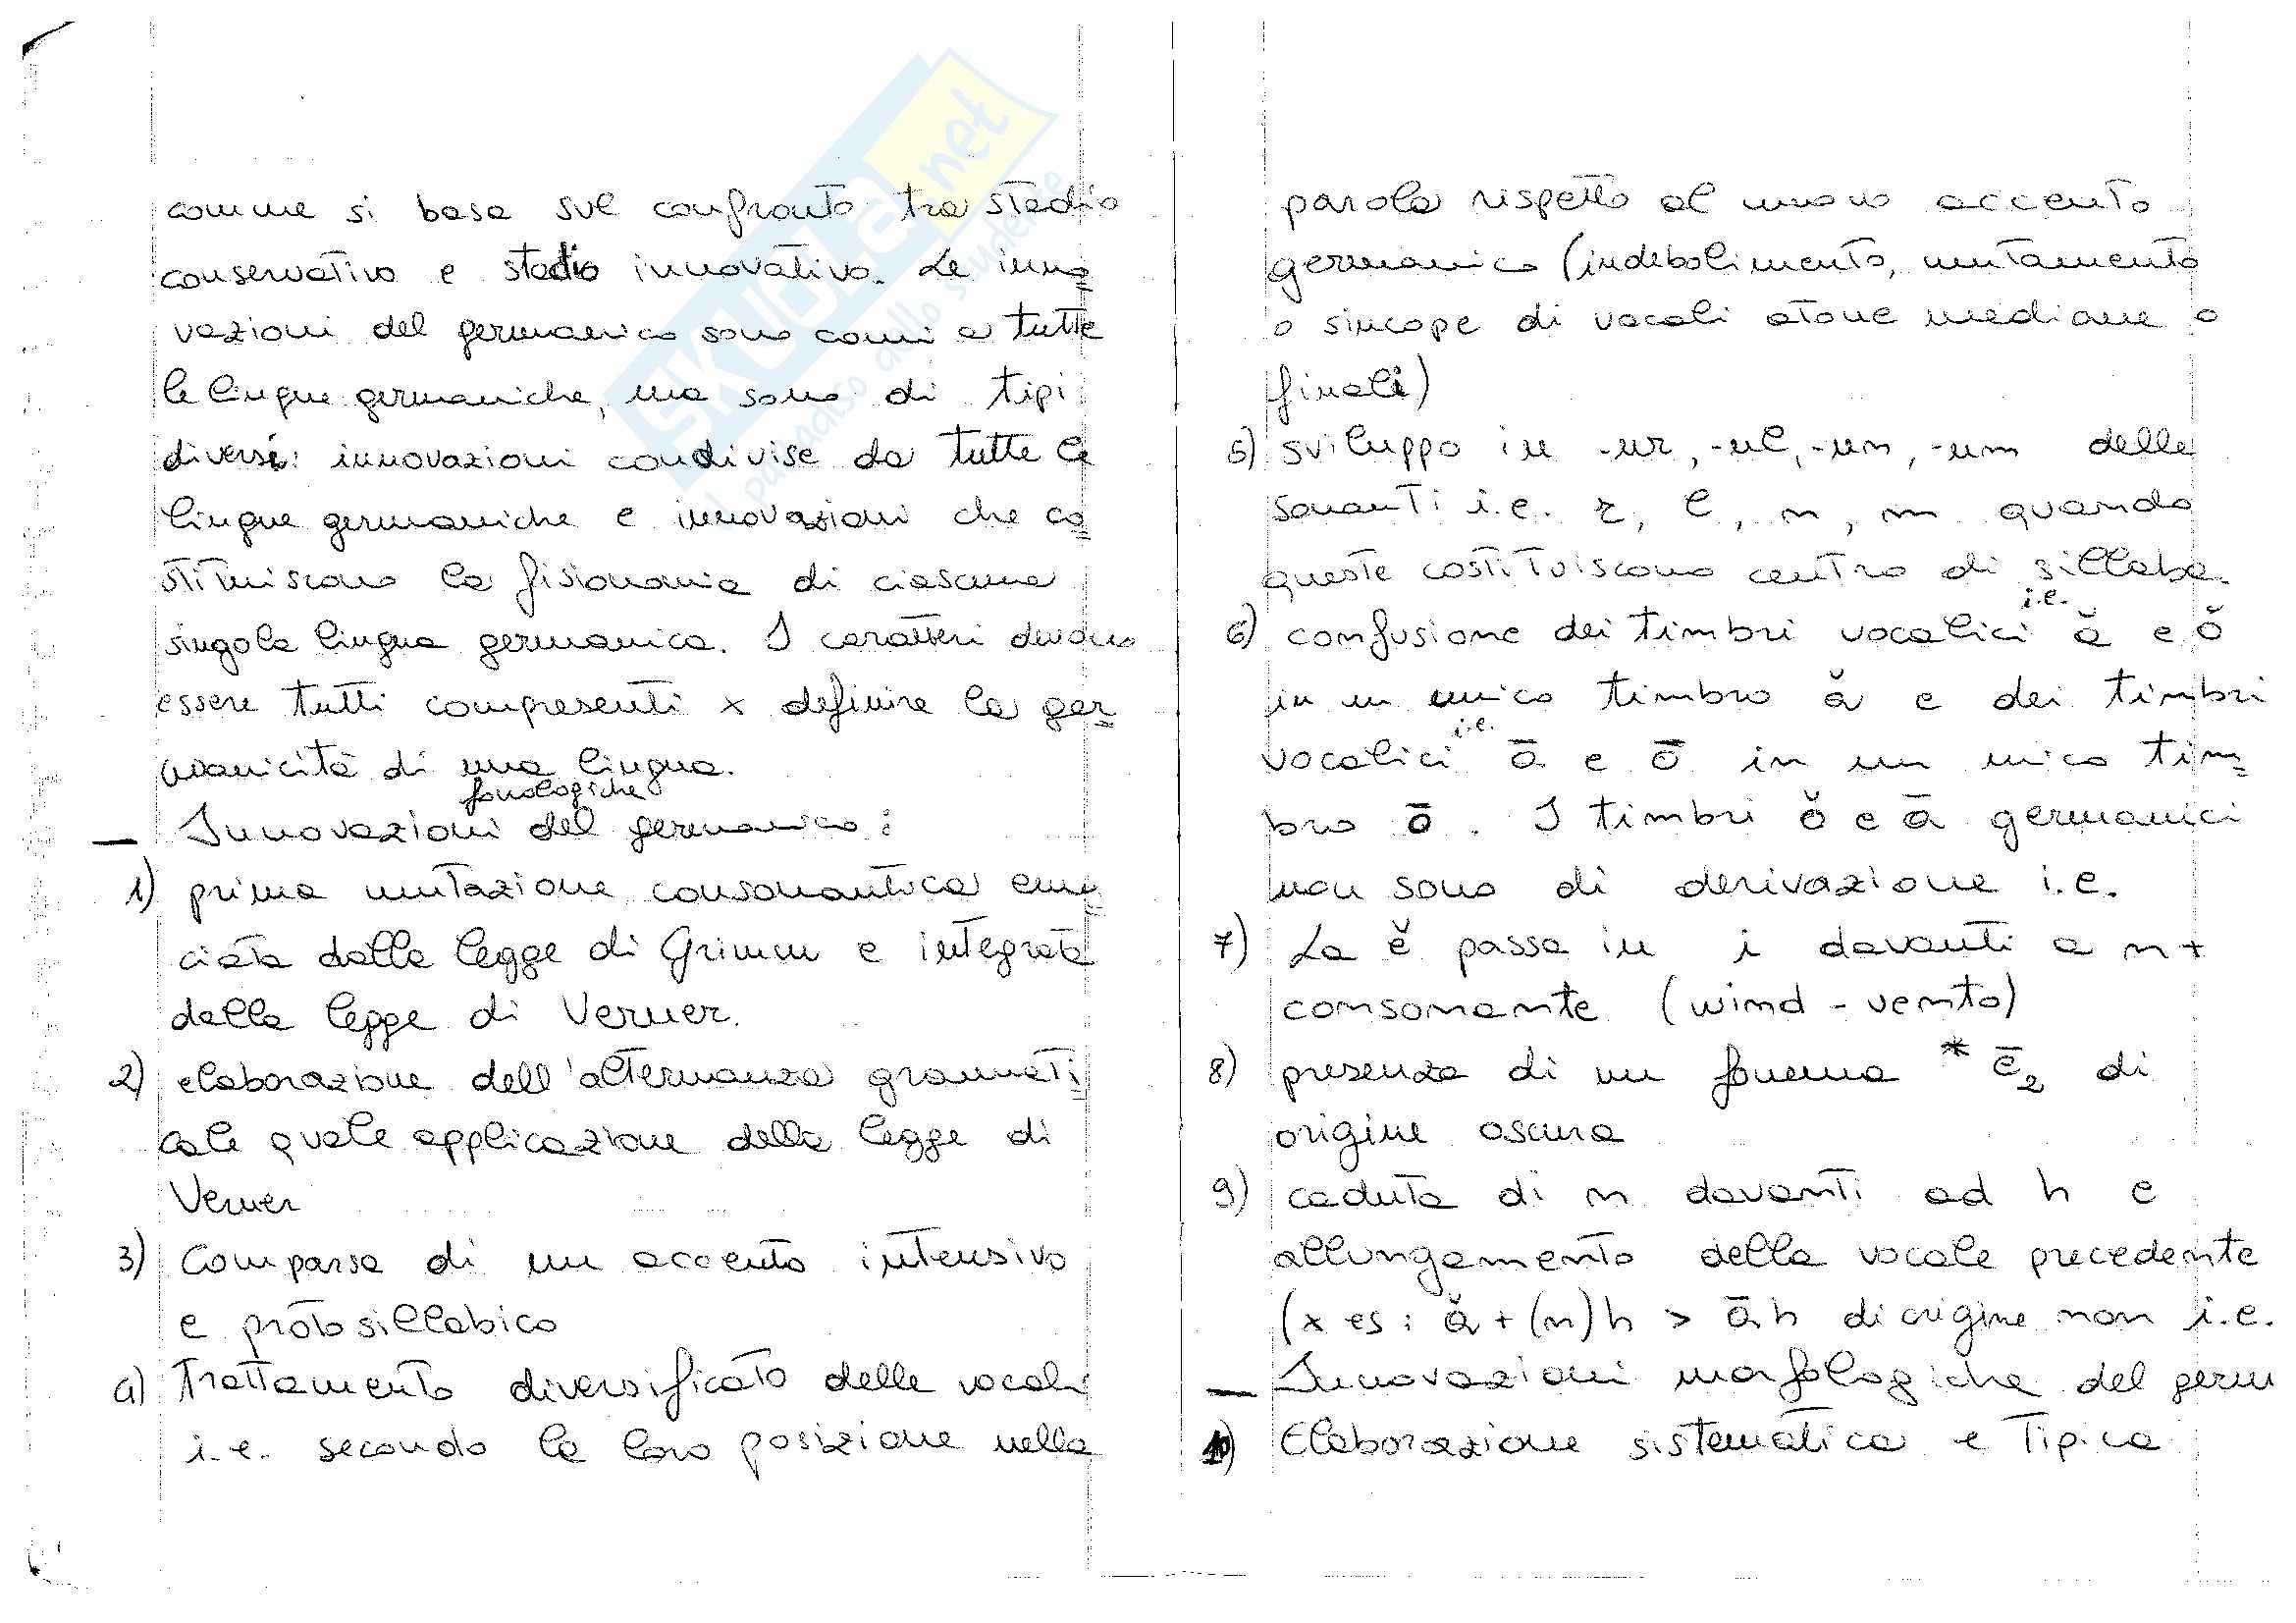 comune si basa sul confronto tra stadio
conservativo e stadio innovativo. Le inno
vazioni del germanico sono comi a tutte
le lingue germaniche, ma sono di tipi
diversi: innovazioni condivise da tutte le
lingue germaniche e innovazioni che co
stituiscono la fisionomia di ciascuna
singola lingua germanica. I caratteri devono
essere tutti compresenti x definire la ger
manicità di una lingua.
— Innovazioni fonologiche del germanico:
1) prima mutazione consonantica enun
ciata dalla legge di Grimm e integrata
dalla legge di Verner.
2) elaborazione dell'alternanza grammati
cale quale applicazione della legge di
Verner
3) Comparsa di un accento intensivo
e protosillabico
4) Trattamento diversificato delle vocali
i.e. secondo la loro posizione nella
parola rispetto al nuovo accento
germanico (indebolimento, mutamento
o sincope di vocali atone mediane o
finali)
5) sviluppo in -ur, -ul, -un, -um delle
sonanti i.e. r, l, n, m quando
queste costituiscono centro di sillaba.
6) confusione dei timbri vocalici i.e. ă e ŏ
in un unico timbro ă e dei timbri
vocalici i.e. ā e ō in un unico tim
bro ō. I timbri ŏ e ā germanici
non sono di derivazione i.e.
7) La ĕ passa in i davanti a n +
consonante (wind - vento)
8) presenza di un fonema * ē₂ di
origine oscura
9) caduta di n davanti ad h e
allungamento della vocale precedente
(x es: ă + (n)h > āh di origine non i.e.
— Innovazioni morfologiche del germ
10) Elaborazione sistematica e tipica
SKUOLA.net
il paradiso dello studente